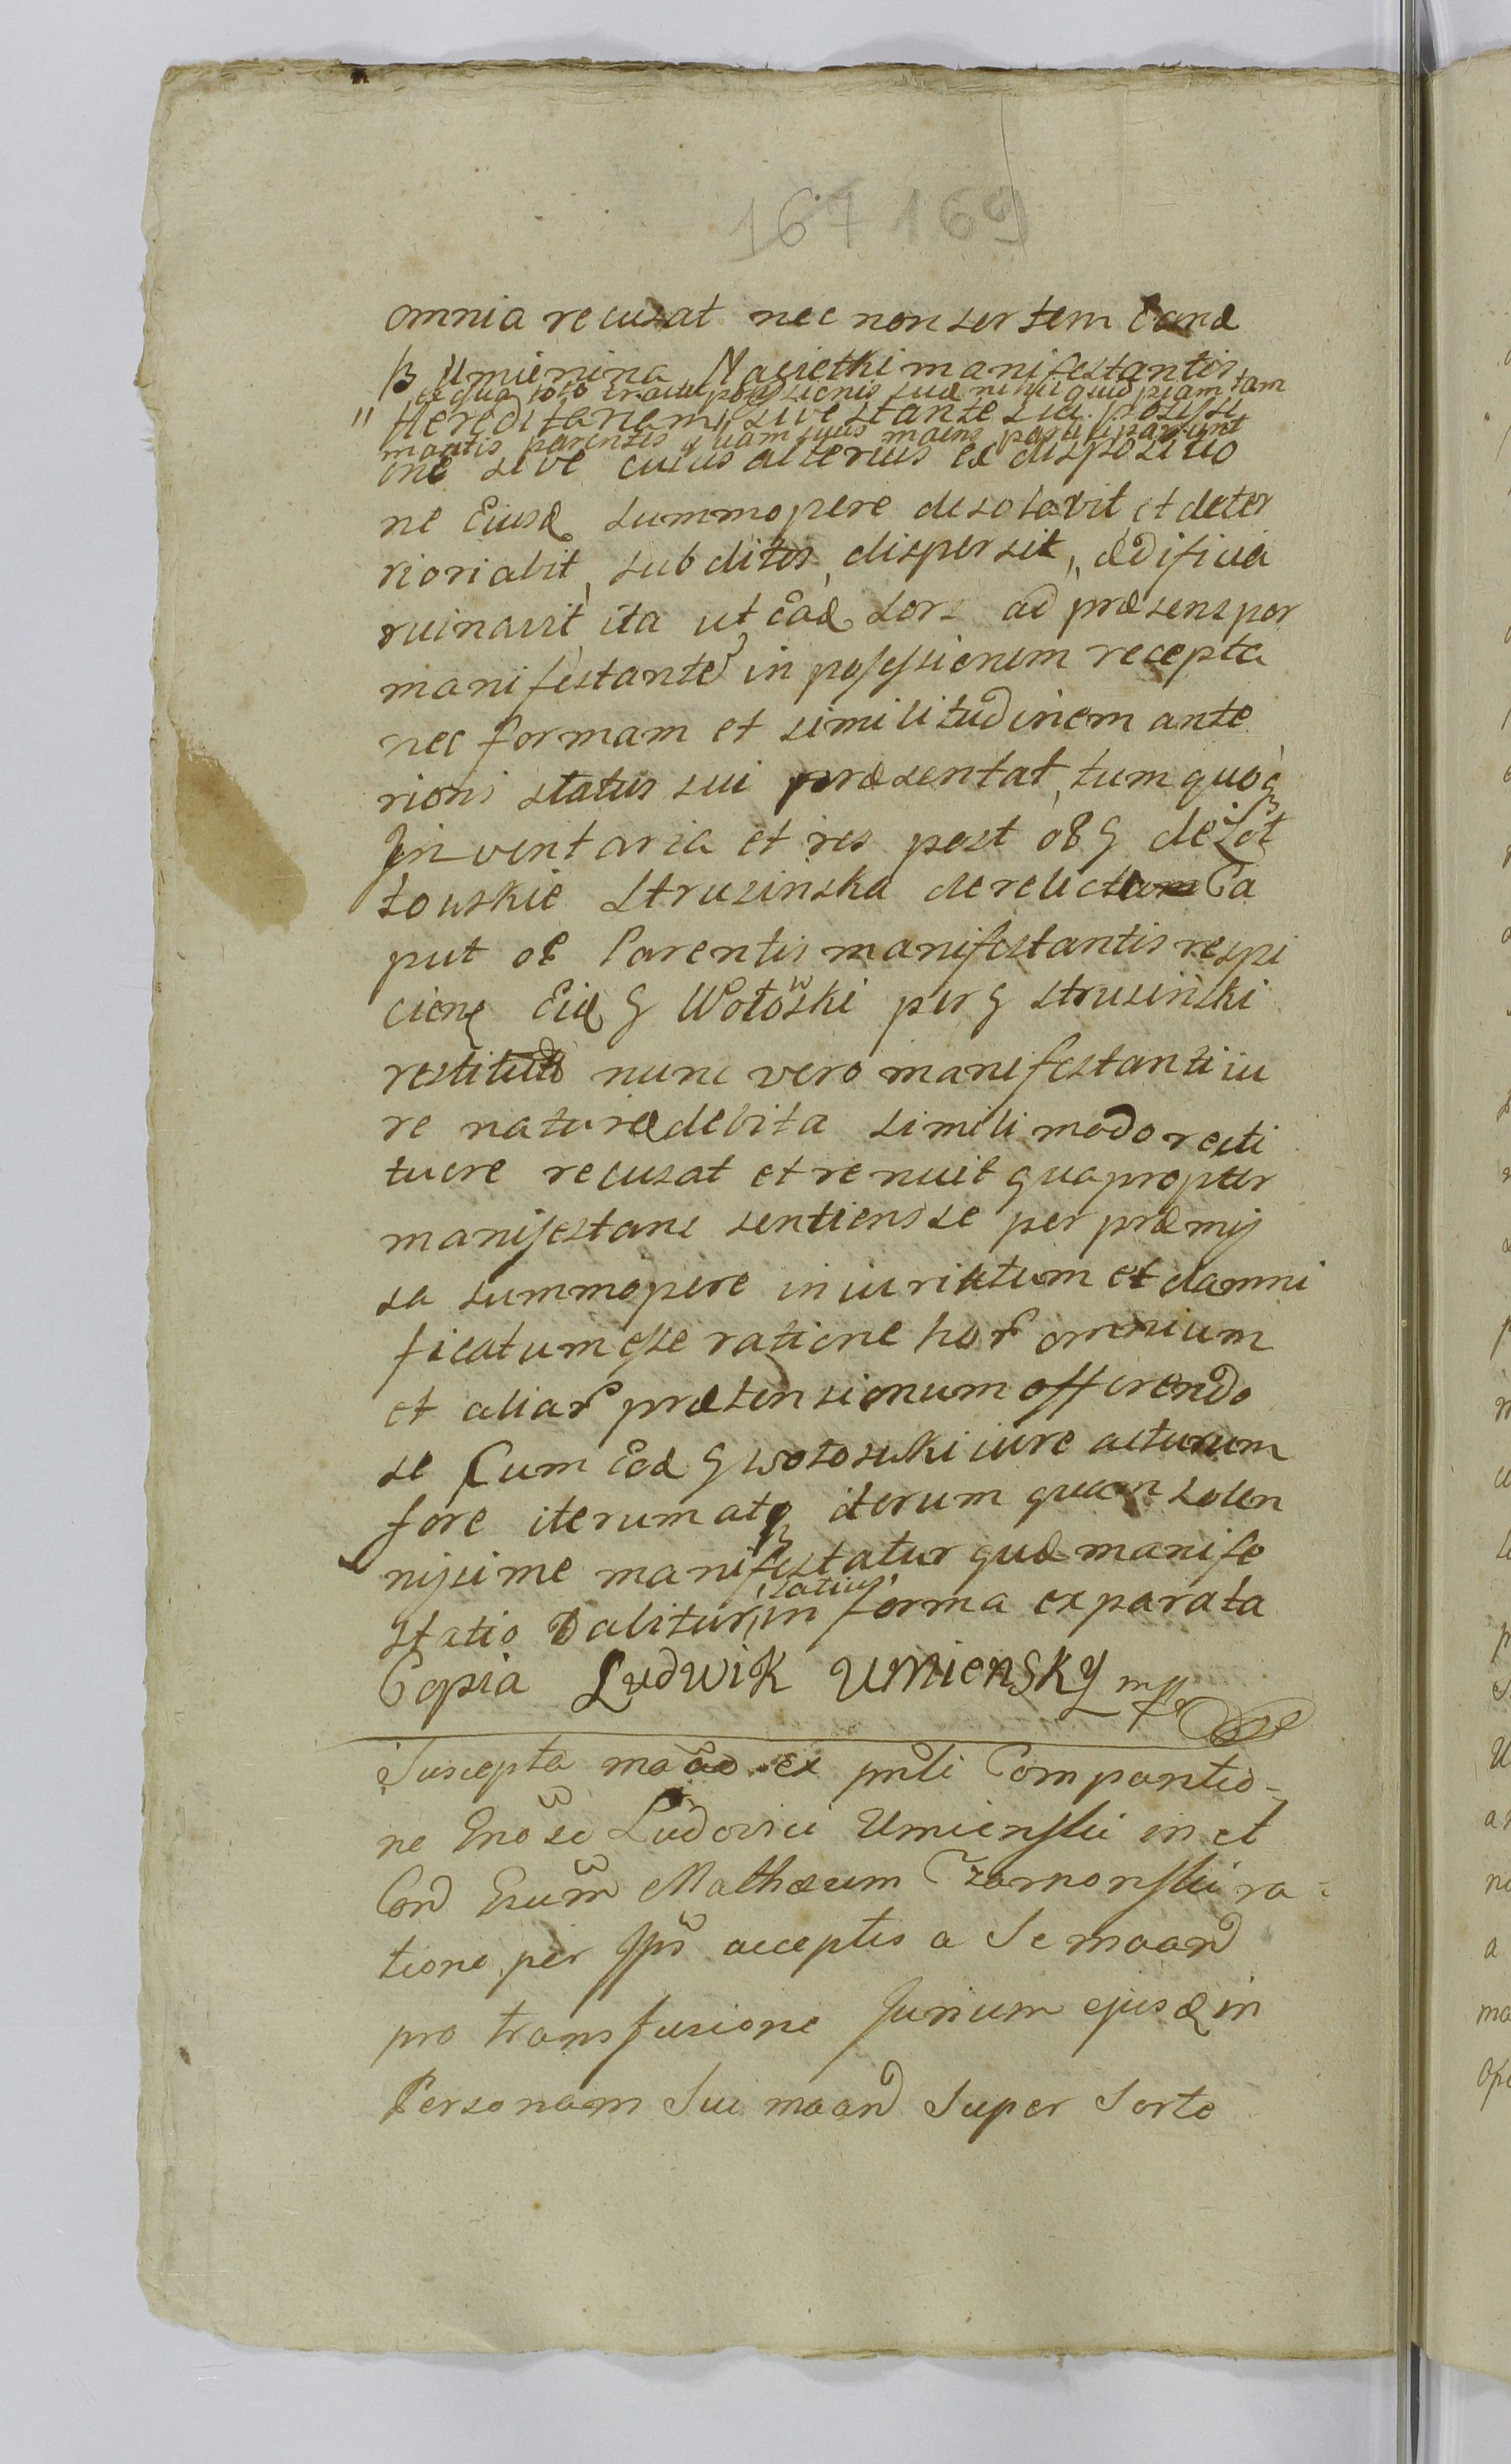 167 169
omnia recusat nec non sortem Eand
in Umienina Nagietki manifestantis
ex qua toto tractu possessionis suæ nihil quidpiam tam
" Hereditariam " sive stante sua possessi
mantis parentis quam ipsius manens participarunt
one sive cuius alterius ex dispositio
ne Eiusd summopere desolavit et deter
rioriabit, subditos, dispersit, ædificia
ruinavit ita ut ead sors ad præsens per
manifestante in possessionem recepta
nec formam et similitudinem ante
rioris status sui præsentat, tum quoq
Inventaria et res post ob G de Zot
towskie Strusinska derelicta Ca
put ob Parentis manifestantis respi
cien Eid G Wołowski per G Strusinski
restituto nunc vero manifestanti iu
re naturæ debita simili modo resti
tuere recusat et renuit quapropter
manifestans sentiens se per præmis
sa summopere iniuriatum et damni
ficatum esse ratione hor omnium
et aliar prætensionum offerendo
se Cum Eod G Wołoski iure acturum
fore iterum atq iterum quam solen
nissime manifestatur quæ manife
statio Dabitur, latius in forma ex parata
Copia Ludwik Umiensky mp
Suscepta maão ex pnti Comparitio-
ne Gnosi Ludovici Umienski in et
Con Gnum Mathæum Czarnonski ra-
tione per Ips acceptis a Se maand
pro transfusione Jurium ejusd in
Personam Sui maand Super Sorte